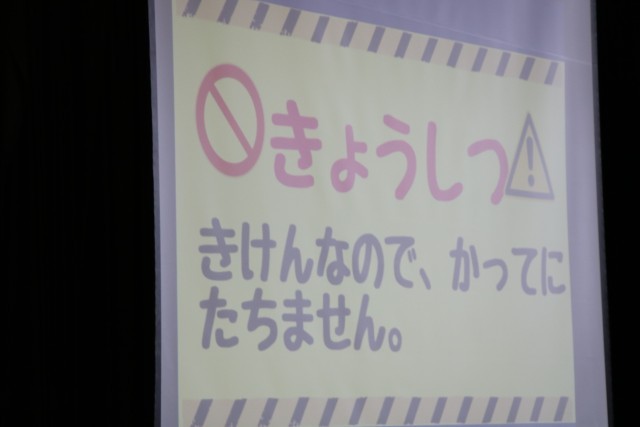 きょうしつ
きけんなので、かってに
たちません。